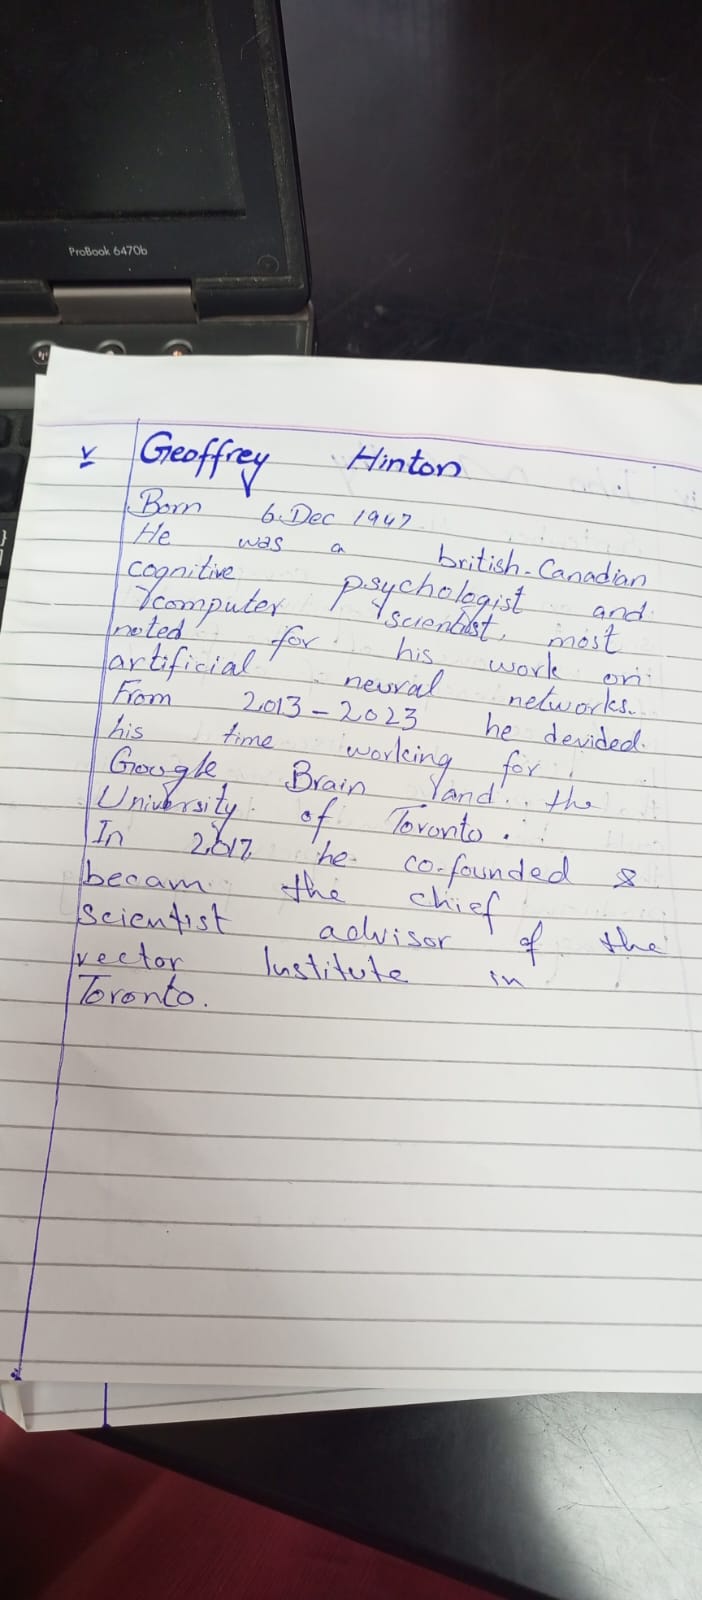 ProBook 6470b
v Geoffrey Hinton
Born 6 Dec 1947
He was a british-Canadian
cognitive psychologist and
computer scientist, most
noted for his work on
artificial neural networks.
From 2013-2023 he devided
his time working for
Google Brain and the
University of Toronto.
In 2017 he co-founded &
becam the chief
scientist advisor of the
vector Institute in
Toronto.